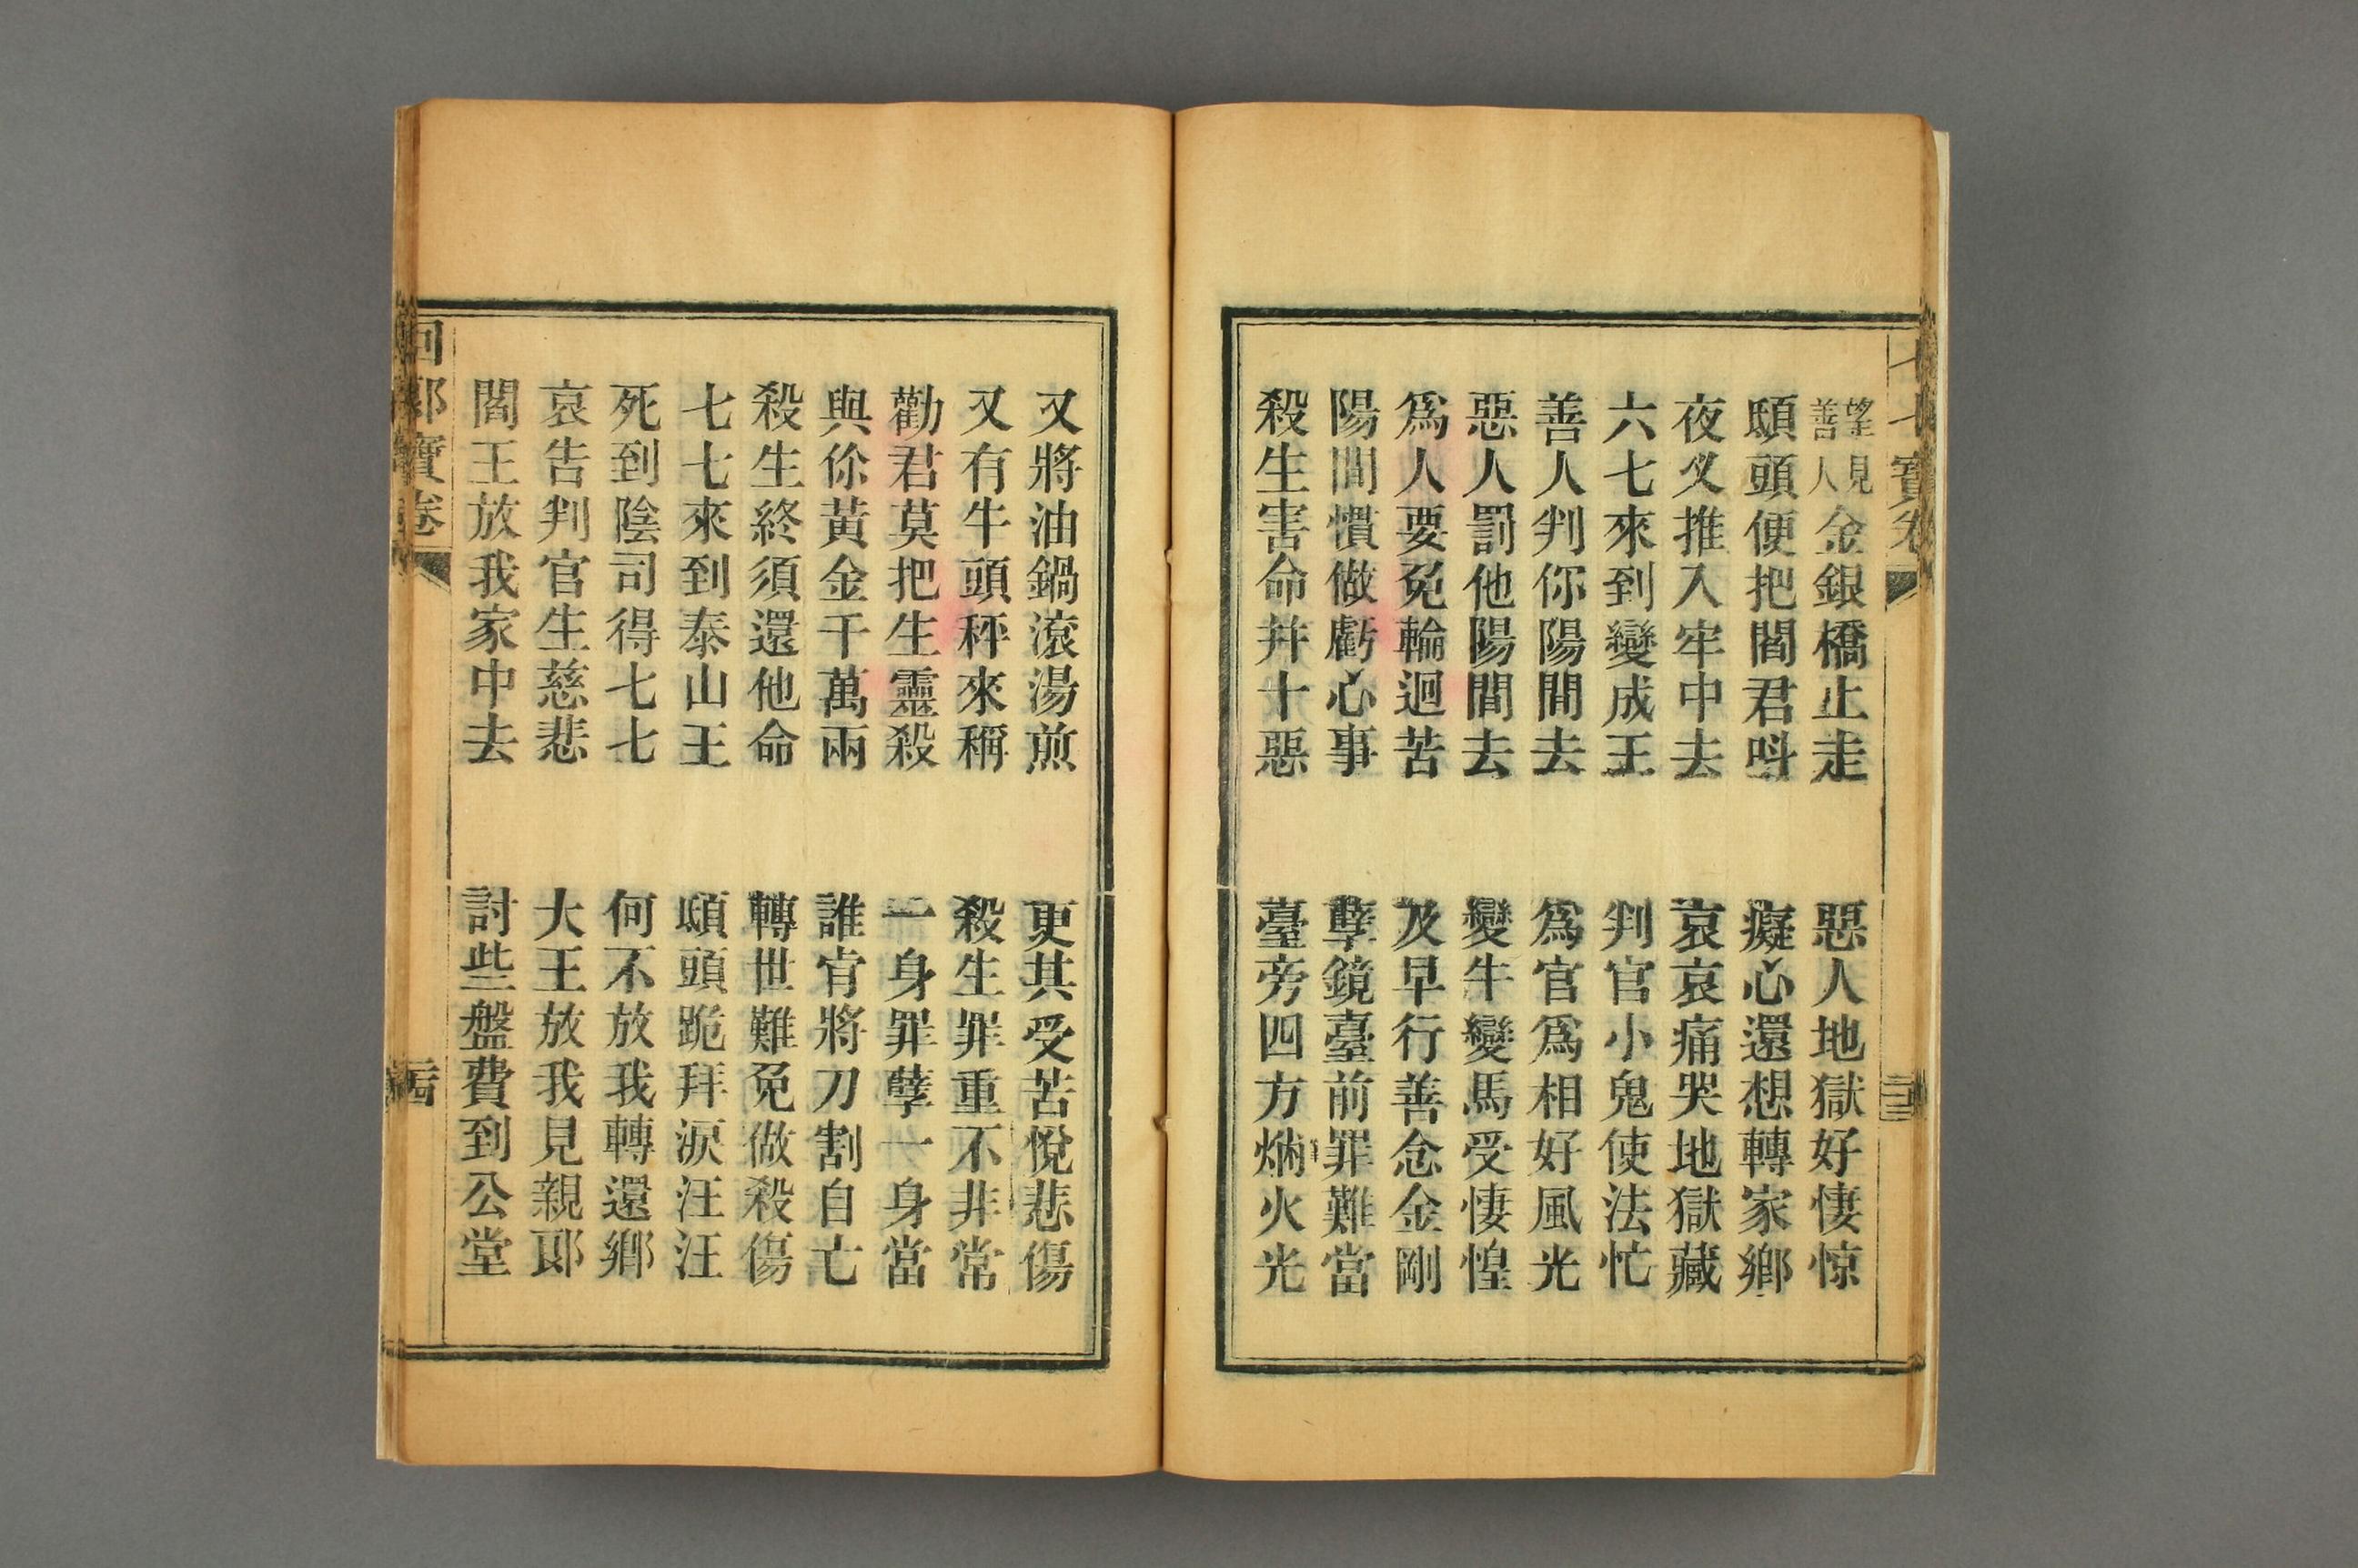 七七寶卷
二十三
望見善人金銀橋上走 惡人地獄好悽惊
磕頭便把閻君呌 癡心還想轉家鄉
夜叉推入牢中去 哀哀痛哭地獄藏
六七來到變成王 判官小鬼使法忙
善人判你陽間去 爲官爲相好風光
惡人罰他陽間去 變牛變馬受悽惶
爲人要免輪迴苦 及早行善念金剛
陽間慣做虧心事 孽鏡臺前罪難當
殺生害命并十惡 臺旁四方焫火光
又將油鍋滾湯煎 更其受苦悅悲傷
又有牛頭秤來稱 殺生罪重不非常
勸君莫把生靈殺 一身罪孽一身當
與你黃金千萬兩 誰肯將刀割自亡
殺生終須還他命 轉世難免做殺傷
七七來到泰山王 磕頭跪拜淚汪汪
死到陰司得七七 何不放我轉還鄉
哀告判官生慈悲 大王放我見親郎
閻王放我家中去 討些盤費到公堂
回郎寶卷
二十四